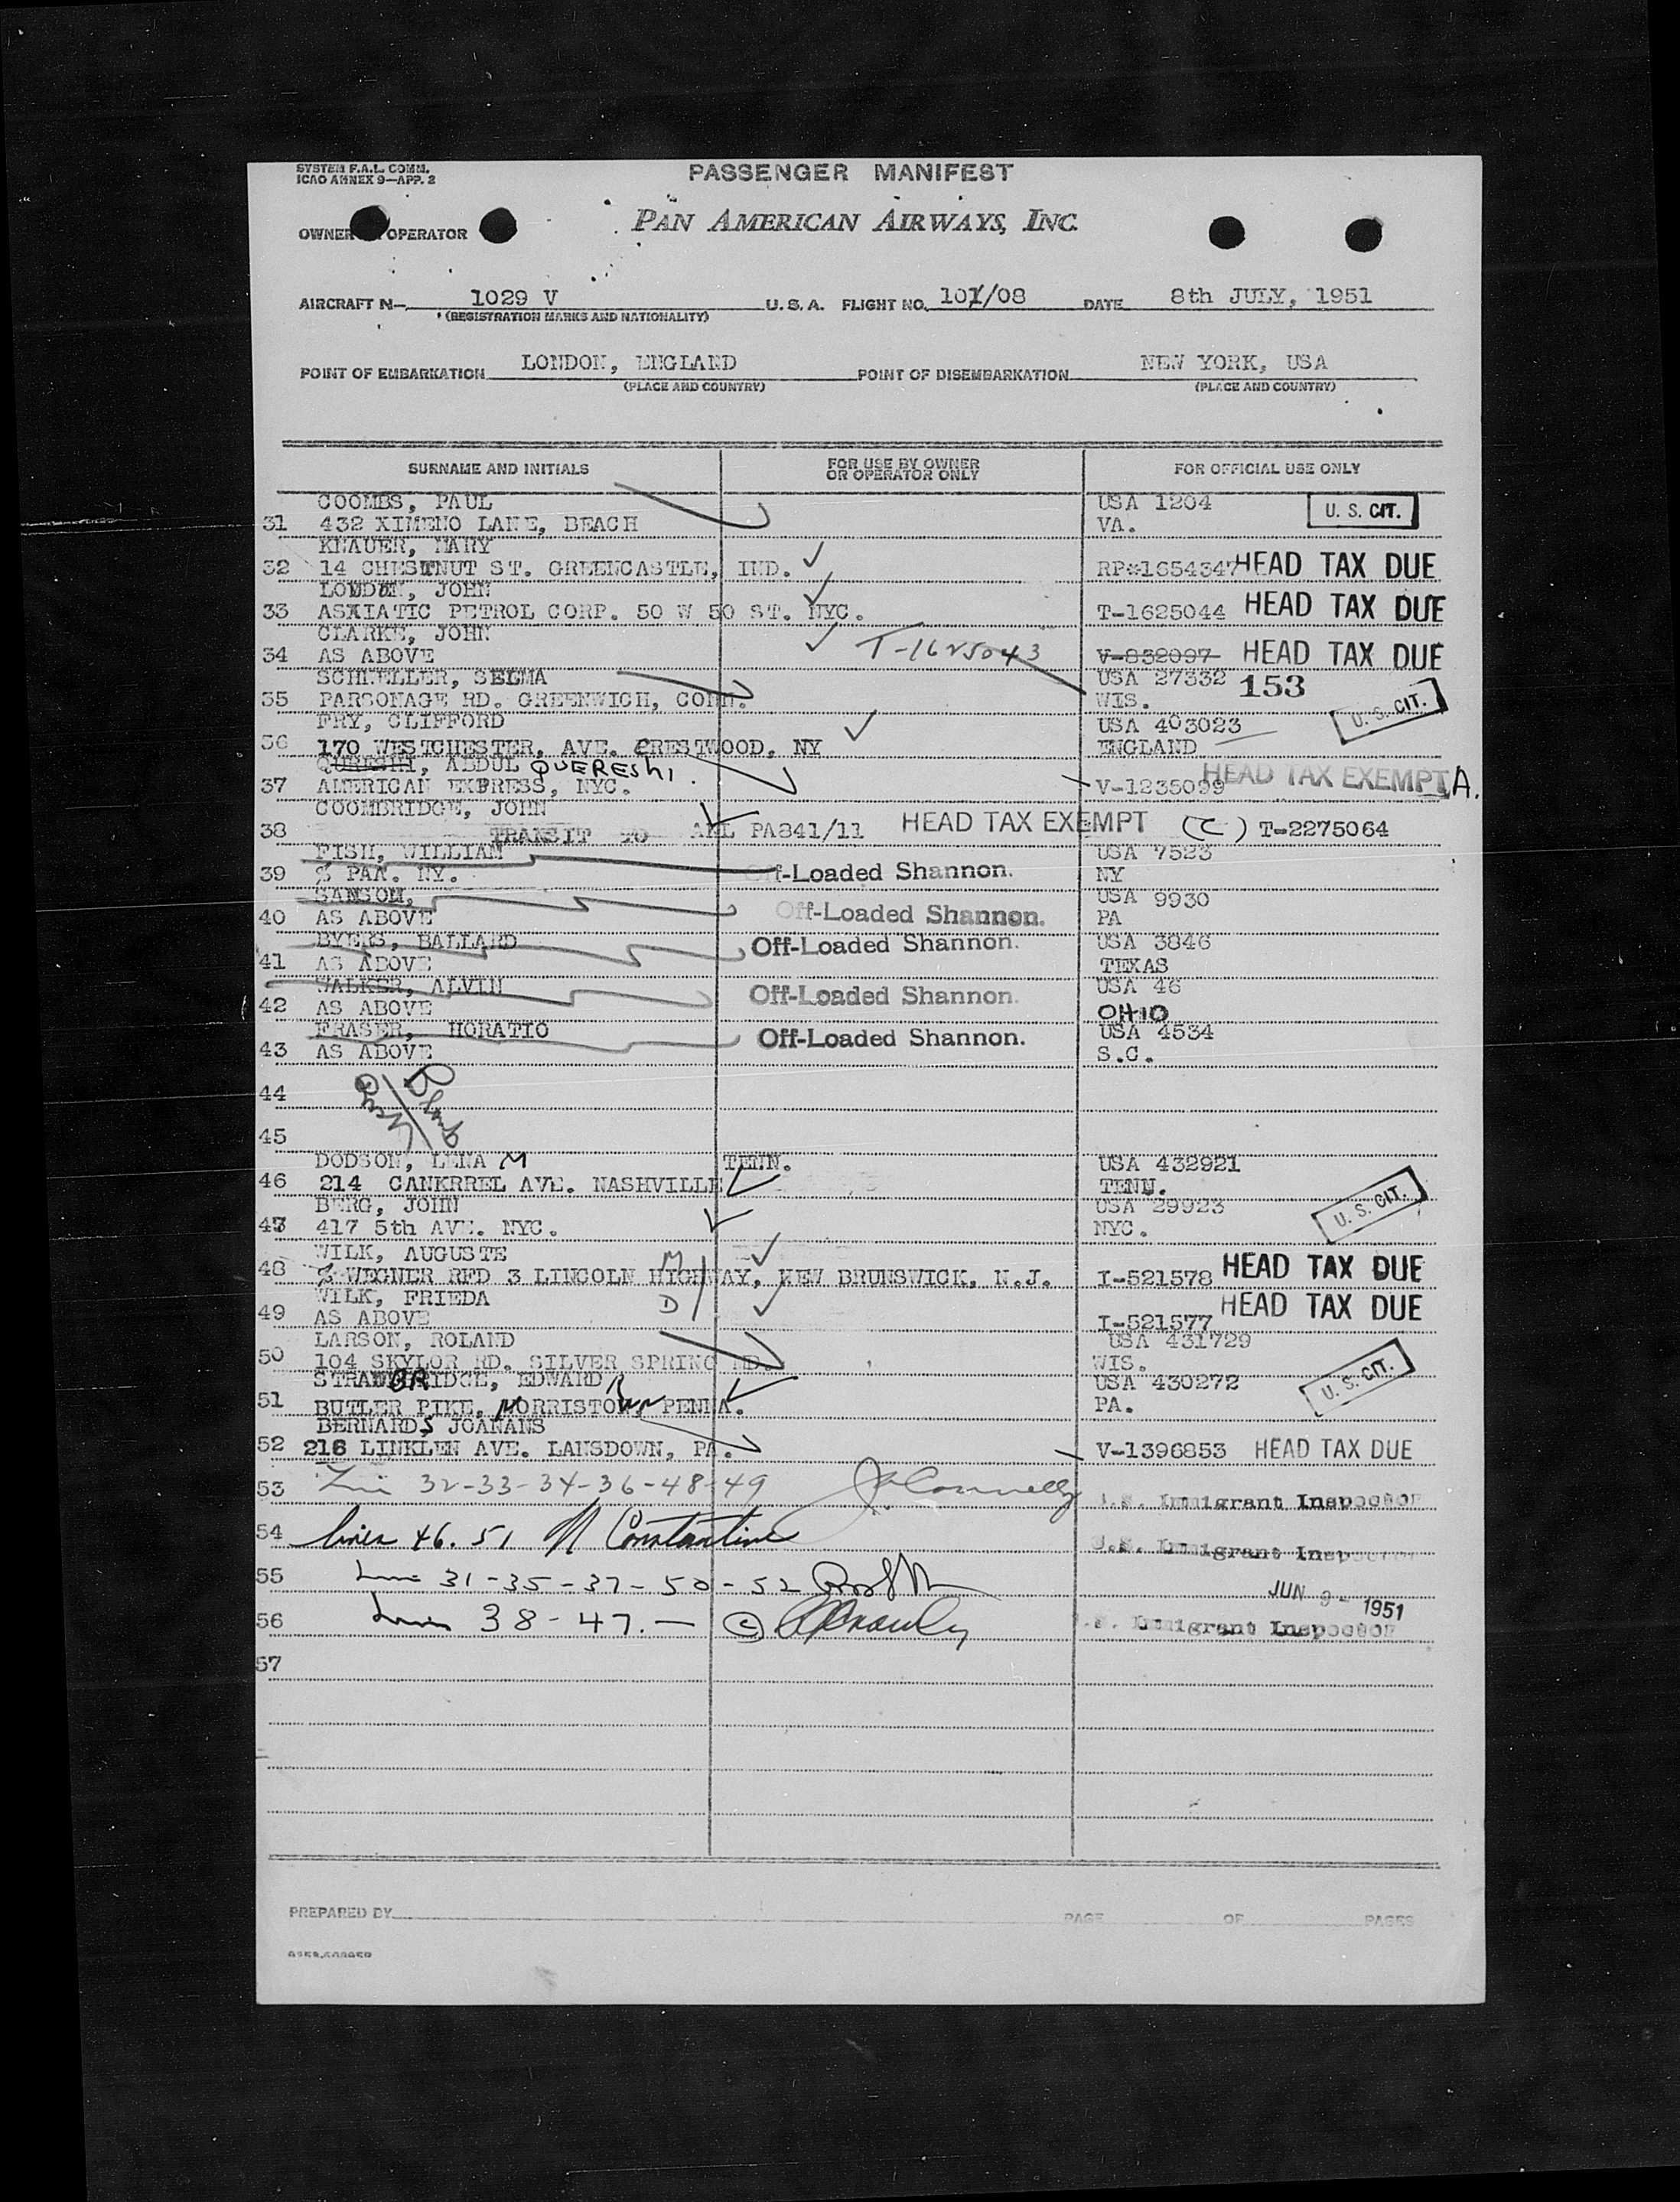 SYSTEM F.A.L. COMM.
ICAO ANNEX 9—APP. 2
PASSENGER MANIFEST
OWNER OPERATOR
PAN AMERICAN AIRWAYS, INC.
AIRCRAFT N— 1029 V U. S. A. FLIGHT NO. 101/08 DATE 8th JULY, 1951
(REGISTRATION MARKS AND NATIONALITY)
POINT OF EMBARKATION LONDON, ENGLAND POINT OF DISEMBARKATION NEW YORK, USA
(PLACE AND COUNTRY) (PLACE AND COUNTRY)
SURNAME AND INITIALS FOR USE BY OWNER OR OPERATOR ONLY FOR OFFICIAL USE ONLY
COOMBS, PAUL USA 1204 U. S. CIT.
31 432 XIMENO LANE, BEACH VA.
KNAUER, MARY
32 14 CHESTNUT ST. GREENCASTLE, IND. RP#1654347 HEAD TAX DUE
LOUDEN, JOHN
33 ASXIATIC PETROL CORP. 50 W 50 ST. NYC. T-1625044 HEAD TAX DUE
CLARKE, JOHN T-1625043
34 AS ABOVE V-832097 HEAD TAX DUE
SCHNELLER, SELMA USA 27332 153
35 PARSONAGE RD. GREENWICH, CONN. WIS. U. S. CIT.
FRY, CLIFFORD USA 403023
36 170 WESTCHESTER, AVE. CRESTWOOD, NY ENGLAND
QURESHI, ABDUL QUERESHI. HEAD TAX EXEMPT A.
37 AMERICAN EXPRESS, NYC. V-1235099
COOMBRIDGE, JOHN
38 TRANSIT TO AKL PA841/11 HEAD TAX EXEMPT (C) T-2275064
FISH, WILLIAM USA 7523
39 % PAA. NY. Off-Loaded Shannon. NY
SANSOM, USA 9930
40 AS ABOVE Off-Loaded Shannon. PA
BYERS, BALLARD Off-Loaded Shannon. USA 3846
41 AS ABOVE TEXAS
WALKER, ALVIN Off-Loaded Shannon. USA 46
42 AS ABOVE OHIO
FRASER, HORATIO Off-Loaded Shannon. USA 4534
43 AS ABOVE S.C.
44
45
DODSON, LENA M TENN. USA 432921
46 214 CANKRREL AVE. NASHVILLE TENN.
BERG, JOHN USA 29923 U. S. CIT.
47 417 5th AVE. NYC. NYC.
WILK, AUGUSTE M
48 % WEGNER RFD 3 LINCOLN HIGHWAY, NEW BRUNSWICK, N.J. I-521578 HEAD TAX DUE
WILK, FRIEDA D
49 AS ABOVE I-521577 HEAD TAX DUE
LARSON, ROLAND USA 431729
50 104 SKYLOR RD. SILVER SPRING MD. WIS. U. S. CIT.
STRAWBRIDGE, EDWARD R USA 430272
51 BUTLER PIKE, NORRISTOWN PENNA. PA.
BERNARDS JOANANS
52 216 LINKLEN AVE. LANSDOWN, PA. V-1396853 HEAD TAX DUE
53 32-33-34-36-48-49 J Connelly U.S. Immigrant Inspector
54 lines 46. 51 N Constantine U.S. Immigrant Inspector
55 Line 31-35-37-50-52 JUN 9 - 1951
56 Line 38-47.— (C) U.S. Immigrant Inspector
57
PREPARED BY PAGE OF PAGES